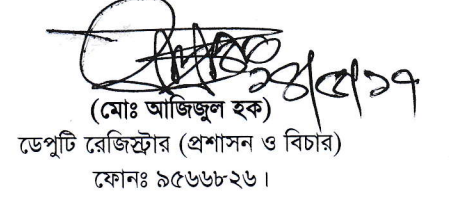 (মোঃ আজিজুল হক)
ডেপুটি রেজিস্ট্রার (প্রশাসন ও বিচার)
ফোনঃ ৯৫৬৬৮২৬।